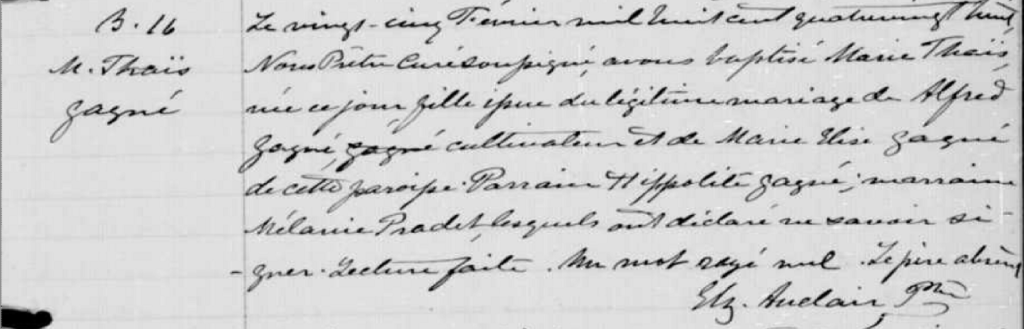 B. 16
M. Thaïs
Gagné
Le vingt-cinq Février mil huit cent quatrevingt huit,
Nous Prêtre Curé soussigné, avons baptisé Marie Thaïs,
née ce jour, fille issue du légitime mariage de Alfred
Gagné, gagné cultivateur et de Marie Elise Gagné
de cette paroisse. Parrain Hippolite Gagné; marraine
Mélanie Pradet, lesquels ont déclaré ne savoir si-
gner. Lecture faite. Un mot rayé nul. Le père absent
Elz. Auclair Ptre